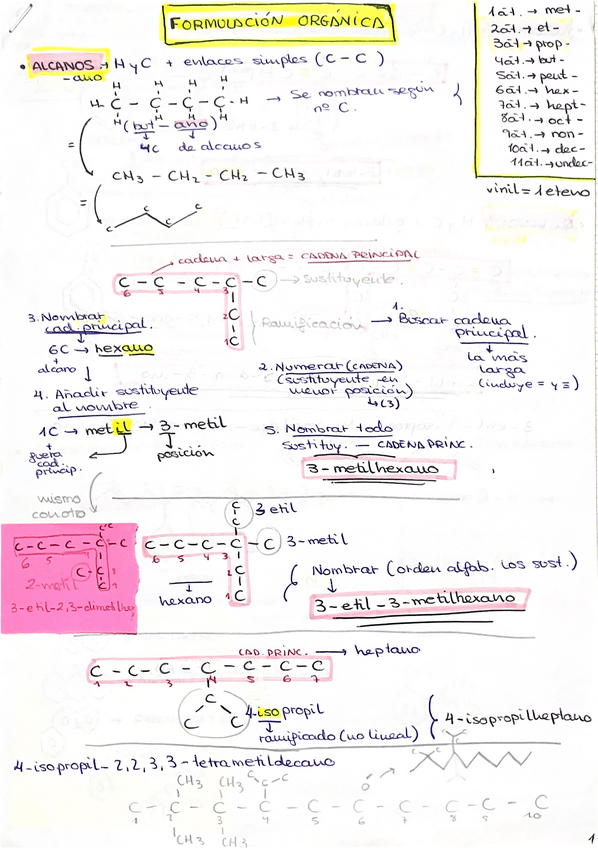 FORMULACIÓN ORGÁNICA
1át. → met-
2át. → et-
3át → prop-
4át. → but-
5át. → pent-
6át. → hex-
7át. → hept-
8át. → oct-
9át. → non-
10át. → dec-
11át. → undec-
vinil = 1 eteno
• ALCANOS → H y C + enlaces simples (C-C)
-ano
H H H H
H - C - C - C - C - H → Se nombran según nº C.
H H H H
(but - ano)
4C de alcanos
=
CH3 - CH2 - CH2 - CH3
=
C C C C
cadena + larga = CADENA PRINCIPAL
C - C - C - C - C - C → Sustituyente.
6 5 4 3
2C
1C
Ramificación
1.
→ Buscar cadena principal.
la más larga
(incluye = y ≡)
2. Numerar (CADENA)
(sustituyente en menor posición)
↳ (3)
3. Nombrar cad. principal.
6C → hexano
+
alcano
4. Añadir sustituyente al nombre.
1C → metil → 3-metil
+
fuera cad. princip.
posición
5. Nombrar todo
Sustituy. — CADENA PRINC.
3-metilhexano
mismo con otro
C - C - C - C - C
6 5
2-metil
3-etil-2,3-dimetilhex
C
C
3 etil
C - C - C - C - C - C 3-metil
6 5 4 3
2C
1C
hexano
Nombrar (orden alfab. los sust.)
3-etil-3-metilhexano
CAD. PRINC. → heptano
C - C - C - C - C - C - C
1 2 3 4 5 6 7
C
C C
4-isopropil
ramificado (no lineal)
4-isopropilheptano
4-isopropil-2,2,3,3-tetrametildecano
CH3 CH3 C-C-C
C - C - C - C - C - C - C - C - C - C
1 2 3 4 5 6 7 8 9 10
CH3 CH3
o
1